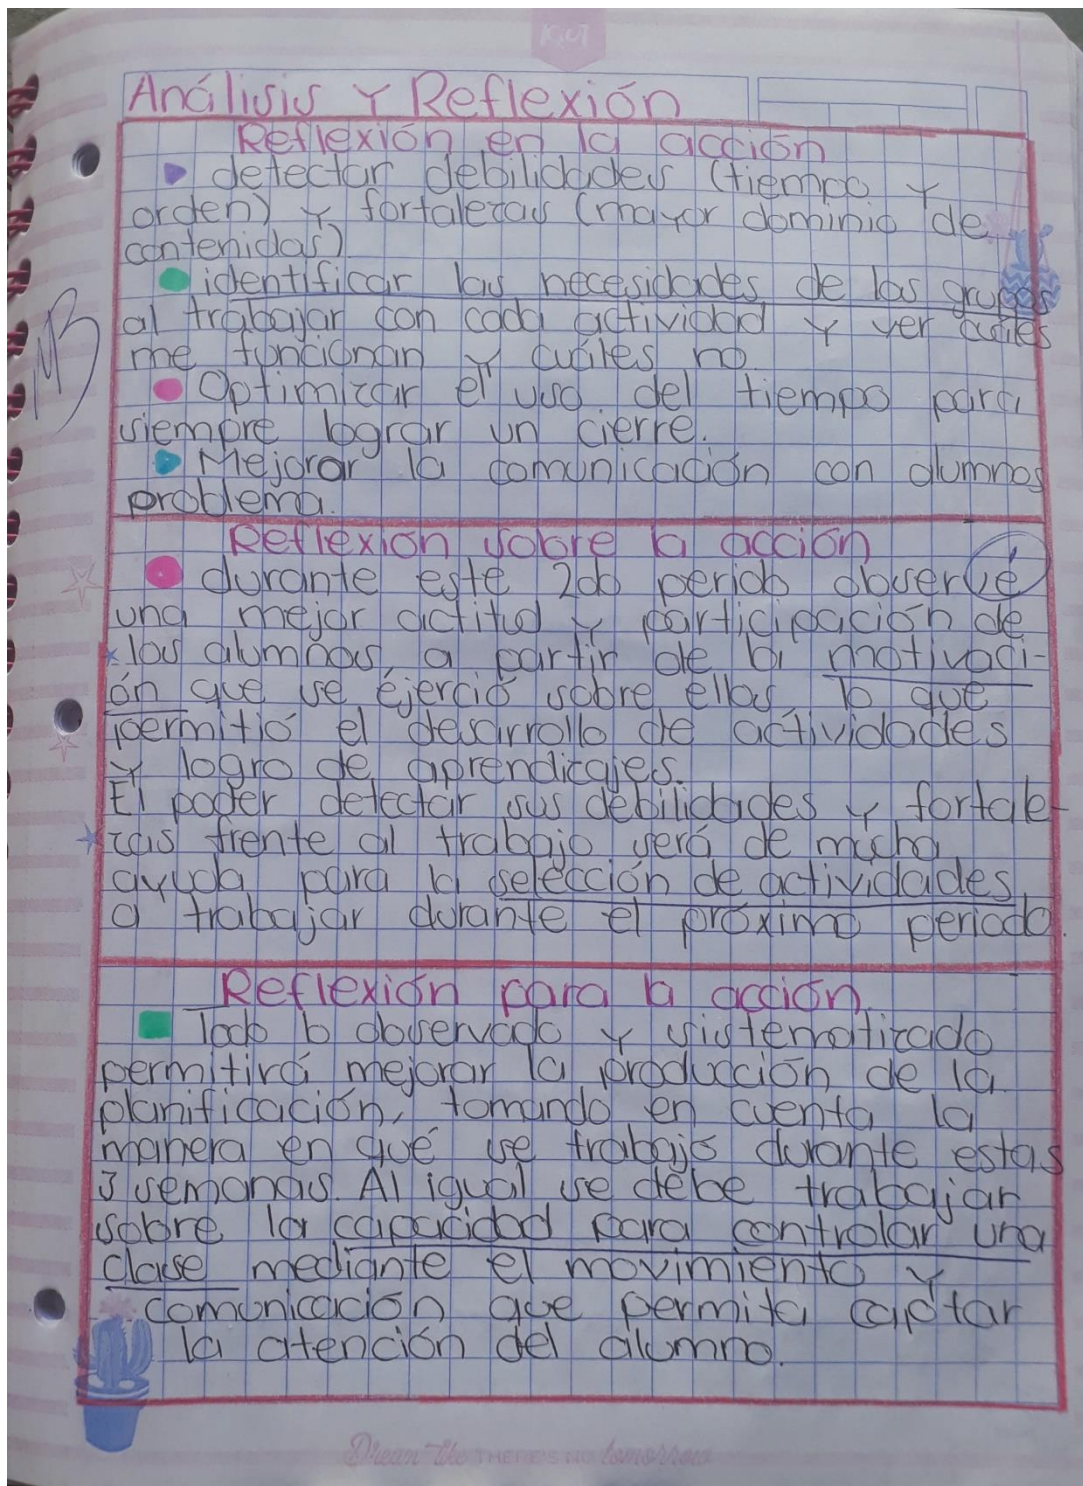 Análisis y Reflexión
Reflexión en la acción
detectar debilidades (tiempo y
orden) y fortalezas (mayor dominio de
contenidos)
identificar las necesidades de los grupos
al trabajar con cada actividad y ver cuáles
me funcionan y cuáles no.
Optimizar el uso del tiempo para
siempre lograr un cierre.
Mejorar la comunicación con alumnos
problema.
MB
Reflexión sobre la acción
durante este 2do periodo observé
una mejor actitud y participación de
los alumnos, a partir de la motivaci-
ón que se ejerció sobre ellos lo que
permitió el desarrollo de actividades
y logro de aprendizajes.
El poder detectar sus debilidades y fortale-
zas frente al trabajo será de mucha
ayuda para la selección de actividades
a trabajar durante el próximo periodo.
Reflexión para la acción.
Todo lo observado y sistematizado
permitirá mejorar la producción de la
planificación, tomando en cuenta la
manera en qué se trabajó durante estas
3 semanas. Al igual se debe trabajar
sobre la capacidad para controlar una
clase mediante el movimiento y
comunicación que permita captar
la atención del alumno.
Dream like THERE'S NO tomorrow